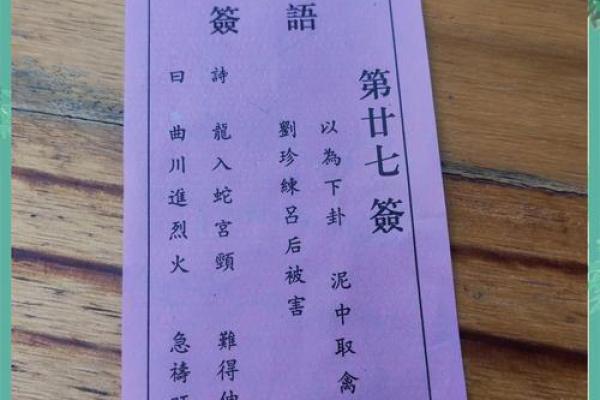 語簽
第廿七簽
以為下卦 泥中取禽
劉珍練呂后被害
詩 龍入蛇宮頸 難得
曰 曲川進烈火 急禱